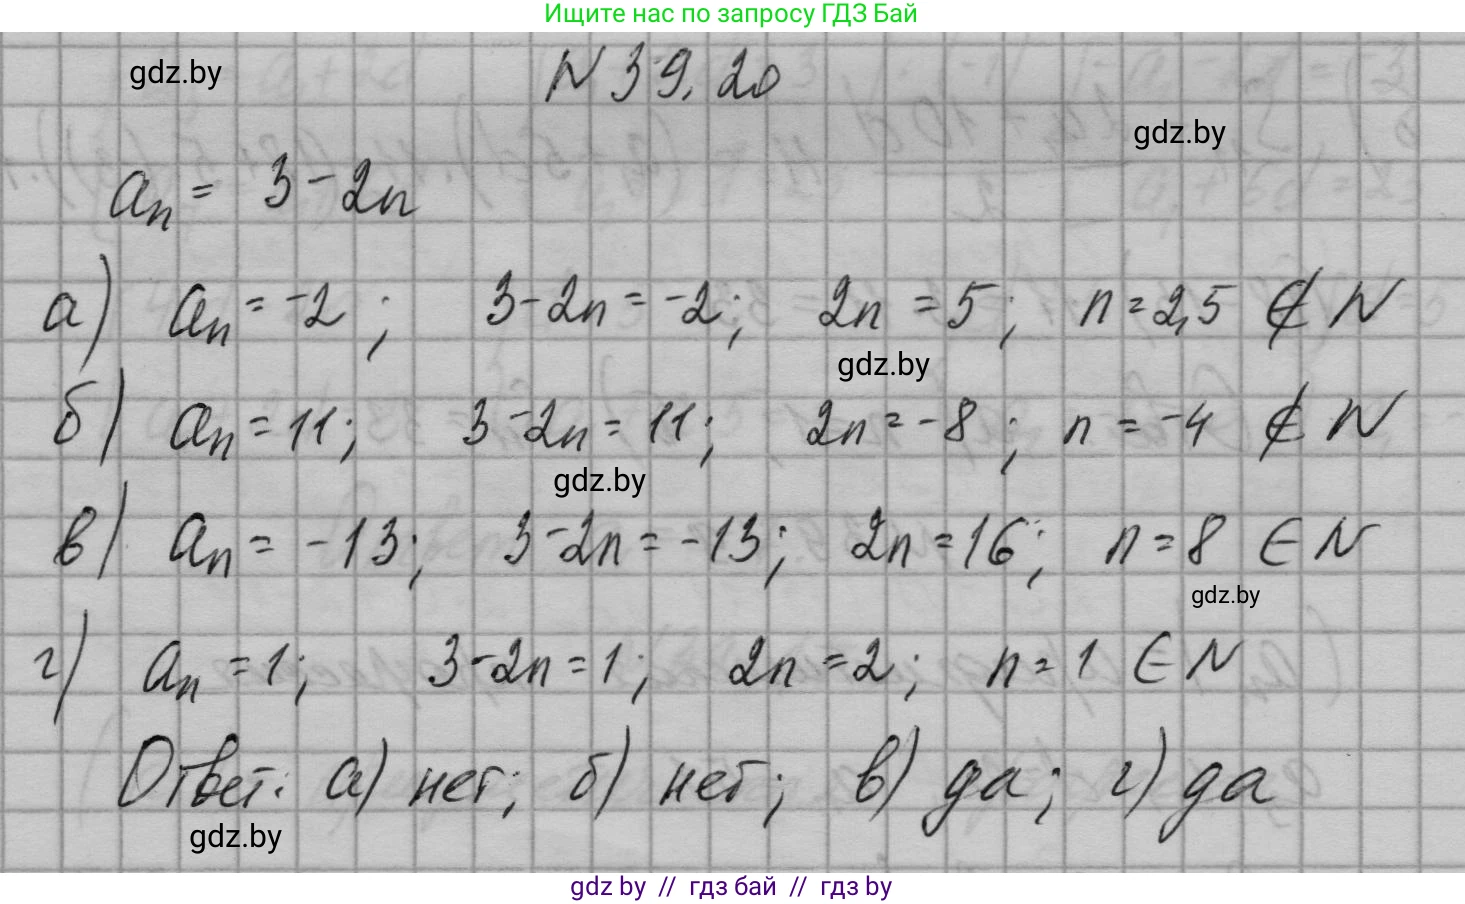 Ищите нас по запросу ГДЗ Бай
gdz.by
N 39.20
gdz.by
aₙ = 3 - 2n
а) aₙ = -2; 3 - 2n = -2; 2n = 5; n = 2,5 ∉ N
gdz.by
б) aₙ = 11; 3 - 2n = 11; 2n = -8; n = -4 ∉ N
gdz.by
в) aₙ = -13; 3 - 2n = -13; 2n = 16; n = 8 ∈ N
gdz.by
г) aₙ = 1; 3 - 2n = 1; 2n = 2; n = 1 ∈ N
Ответ: а) нет; б) нет; в) да; г) да
gdz.by
gdz by // гдз бай // гдз by